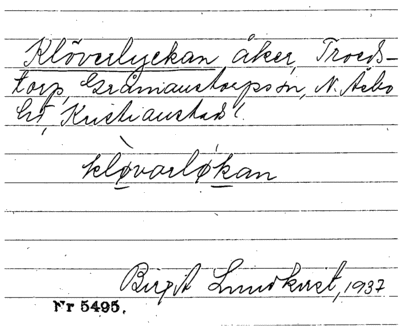 Klöverlyckan åker, Troeds-
torp, Gråmanstorps sn, N. Åsbo
hd, Kristianstads l.
klø̀varlø̀kan
Birgit Lundkvist, 1937
Nr 5495.